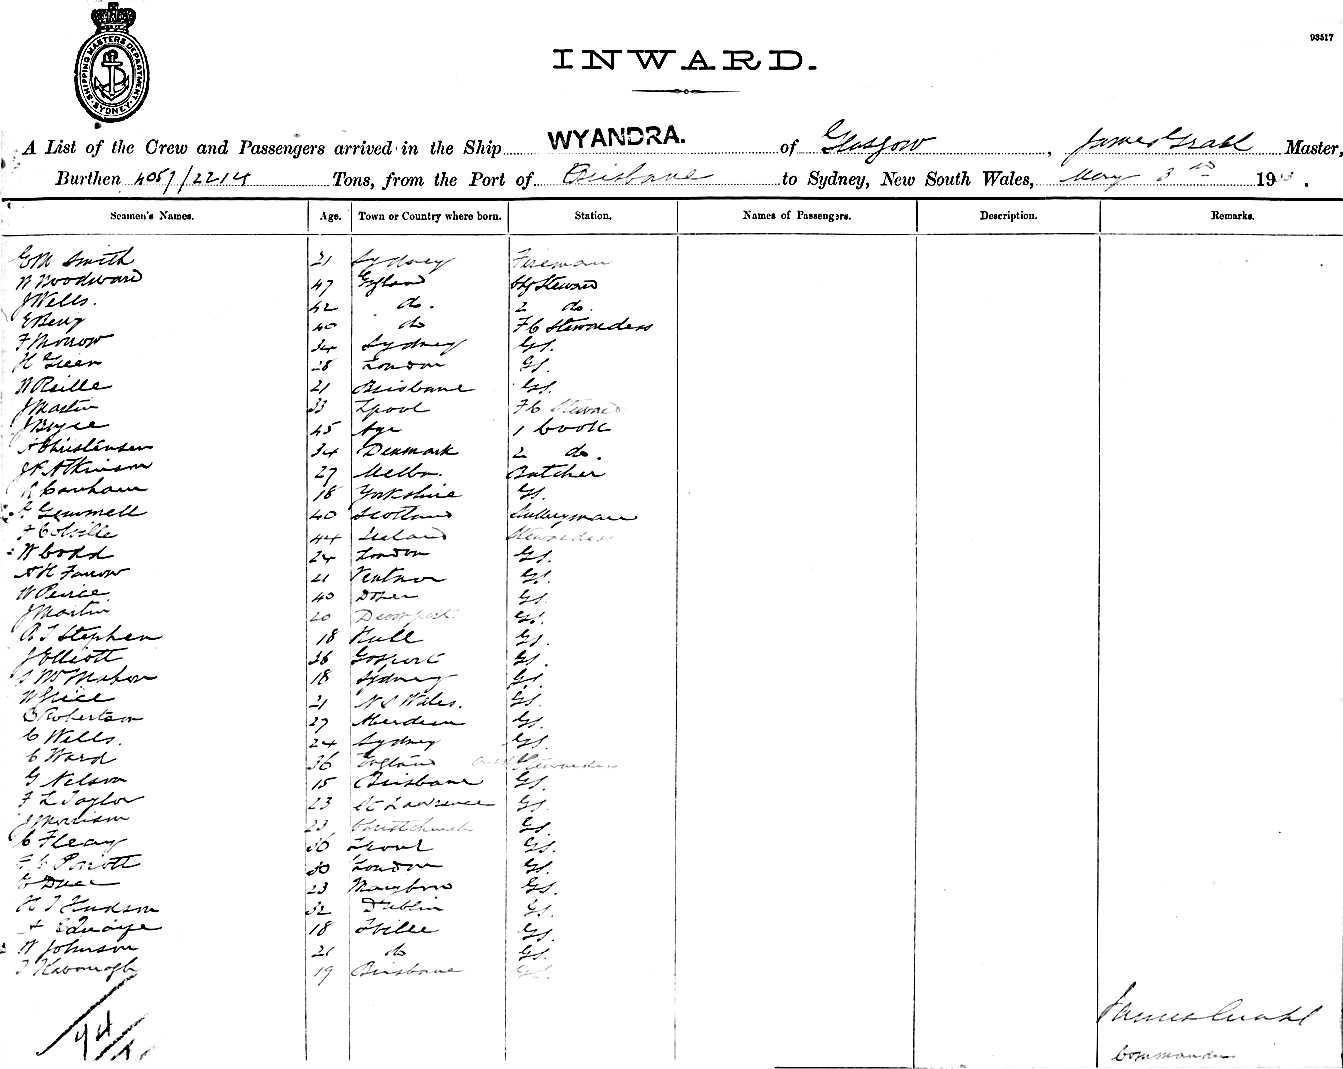 SHIPPING MASTERS DEPARTMENT SYDNEY
93517
INWARD.
A List of the Crew and Passengers arrived in the Ship WYANDRA. of Glasgow, James Grahl Master,
Burthen 4057/2214 Tons, from the Port of Brisbane to Sydney, New South Wales, May 3rd 19 .
Seamen's Names. Age. Town or Country where born. Station. Names of Passengers. Description. Remarks.
E M Smith 21 Sydney Fireman
W Woodward 47 England Chf Steward
J Wells. 42 do. 2 do.
E Berry 40 do F C Stewardess
F Morrow 34 Sydney GS.
H Green 28 London GS.
W Reille 21 Brisbane GS.
J Martin 33 Lpool F C Steward
J Boyce 45 Ayr 1 Cook
A Christensen 34 Denmark 2 do.
J F Atkinson 27 Melbn. Butcher
R Canham 18 Yorkshire GS.
Gemmell 40 Scotland Sculleryman
F Colville 44 Ireland Stewardess
W Codd 24 London GS.
A H Farrow 21 Ventnor GS.
W Peirce 40 Dover GS.
J Martin 20 Devonport GS.
A J Stephen 18 Hull GS.
J Elliott 36 Gosport GS.
J McMahon 18 Sydney GS.
W Grice 21 N S Wales. GS.
Robertson 27 Aberdeen GS.
C Wells. 24 Sydney GS.
C Ward 36 England Stewardess
G Nelson 15 Brisbane GS.
F L Taylor 23 St Lawrence GS.
J Morrison 23 Christchurch GS.
C Fleay 30 Lpool GS.
F C Pariott 30 London GS.
23 Maryboro GS.
H J Hudson 32 Dublin GS.
Quaife 18 Tville GS.
W Johnson 21 do GS.
J Kavanagh 19 Brisbane GS.
94
James Grahl
Commander